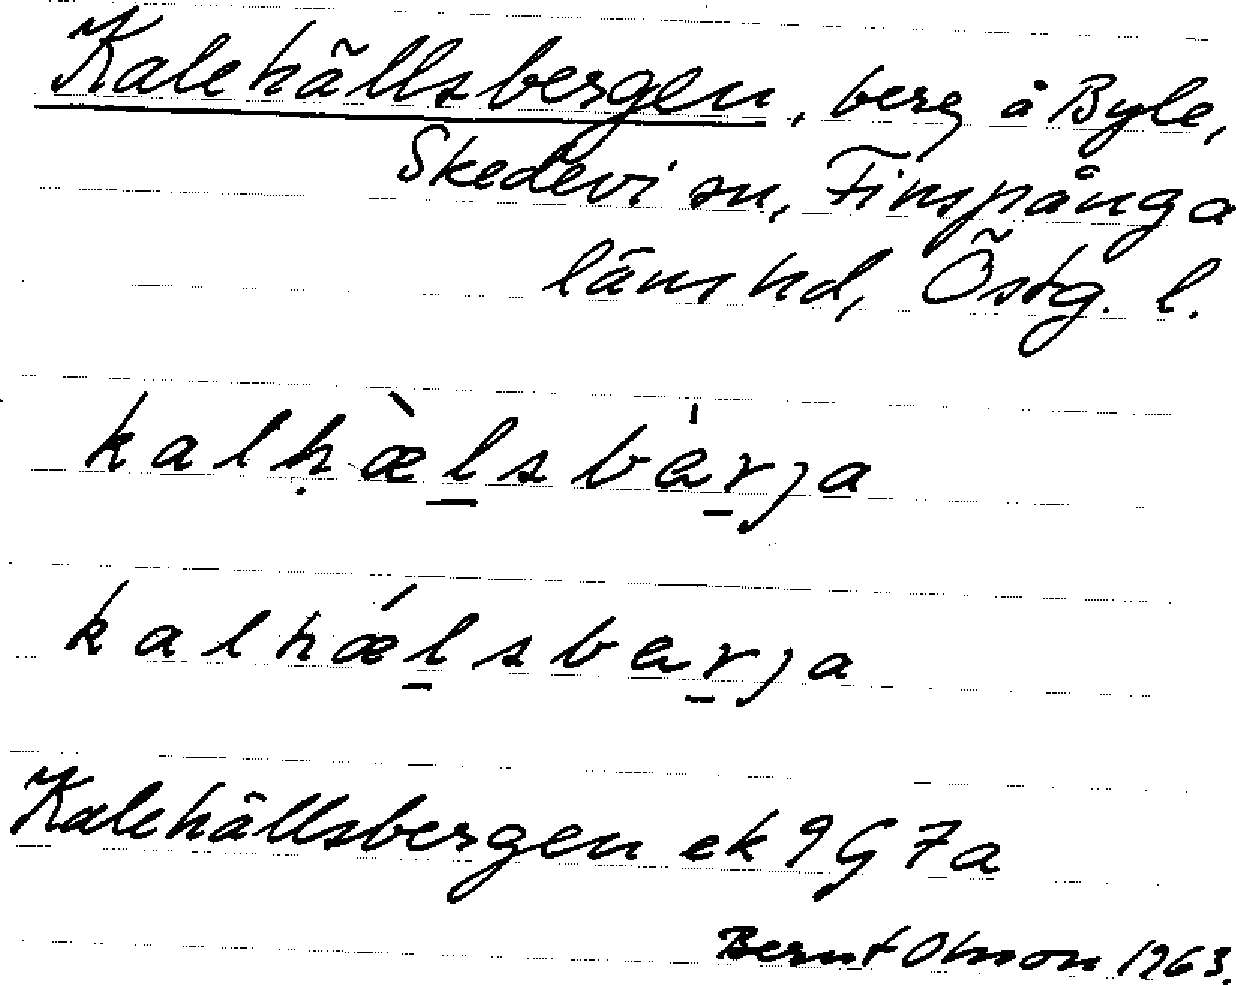 Kalehällsbergen, berg å Byle,
Skedevi sn, Finspånga
läns hd, Östg. l.
kalhæ̀lsbàrja
kalhǽlsbarja
Kalehällsbergen ek 9G7a
Bernt Olsson 1963.